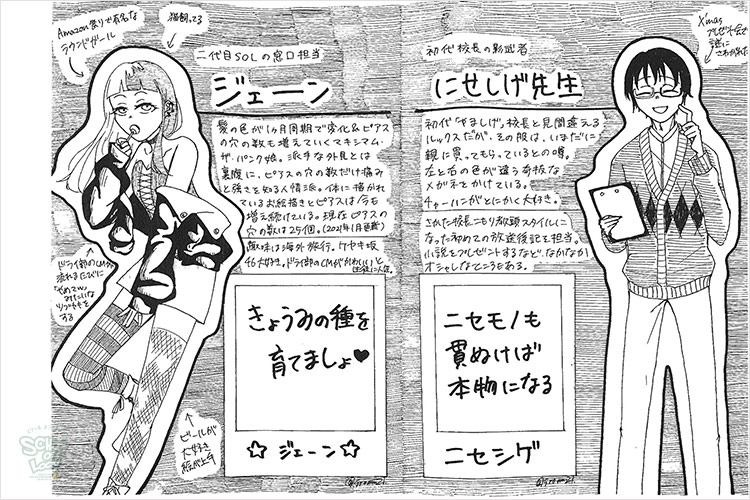 Amazon祭りで有名な
ラウンドガール
猫飼ってる
二代目SOLの窓口担当
ジェーン
髪の色が1ヶ月周期で変化&ピアス
の穴の数も増えていくマキシマム・
ザ・パンク娘。派手な外見とは
裏腹に、ピアスの穴の数だけ痛み
と強さを知る人情派。体に描かれ
ているお絵描きとピアスは今も
増え続けている。現在ピアスの
穴の数は25個。(2021年1月更新)
趣味は海外旅行。ケヤキ坂
46大好き。ドライ部のCMがかわいいと
ドライ部のCMが
流れるたびに
する
きょうみの種を
育てましょ♥
☆ ジェーン ☆
ビールが
大好き
初代校長の影武者
にせしげ先生
X'mas
初代“やましげ”校長と見間違える
ルックスだが、その服は、いまだに
親に買ってもらっているとの噂。
左と右の色が違う奇抜な
メガネをかけている。
チャーハンがとにかく大好き。
された校長こもり教頭スタイルに
なった初めての放送後記も担当。
小説をプレゼントするなど、なかなか
オシャレなところもある。
ニセモノも
貫ぬけば
本物になる
ニセシゲ